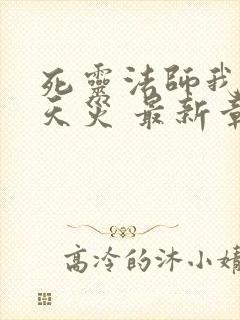 死靈法師我
天災 最新章
高冷的沐小婧